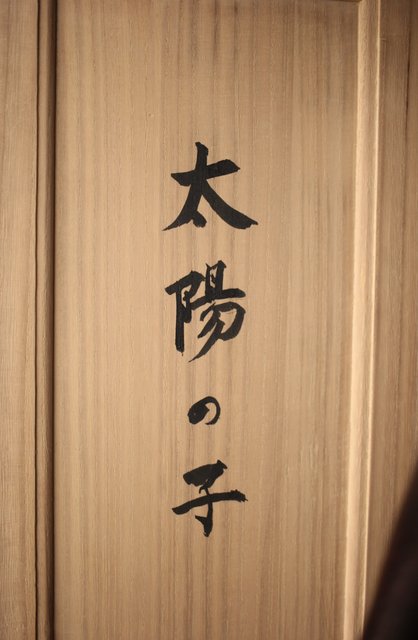 太陽の子